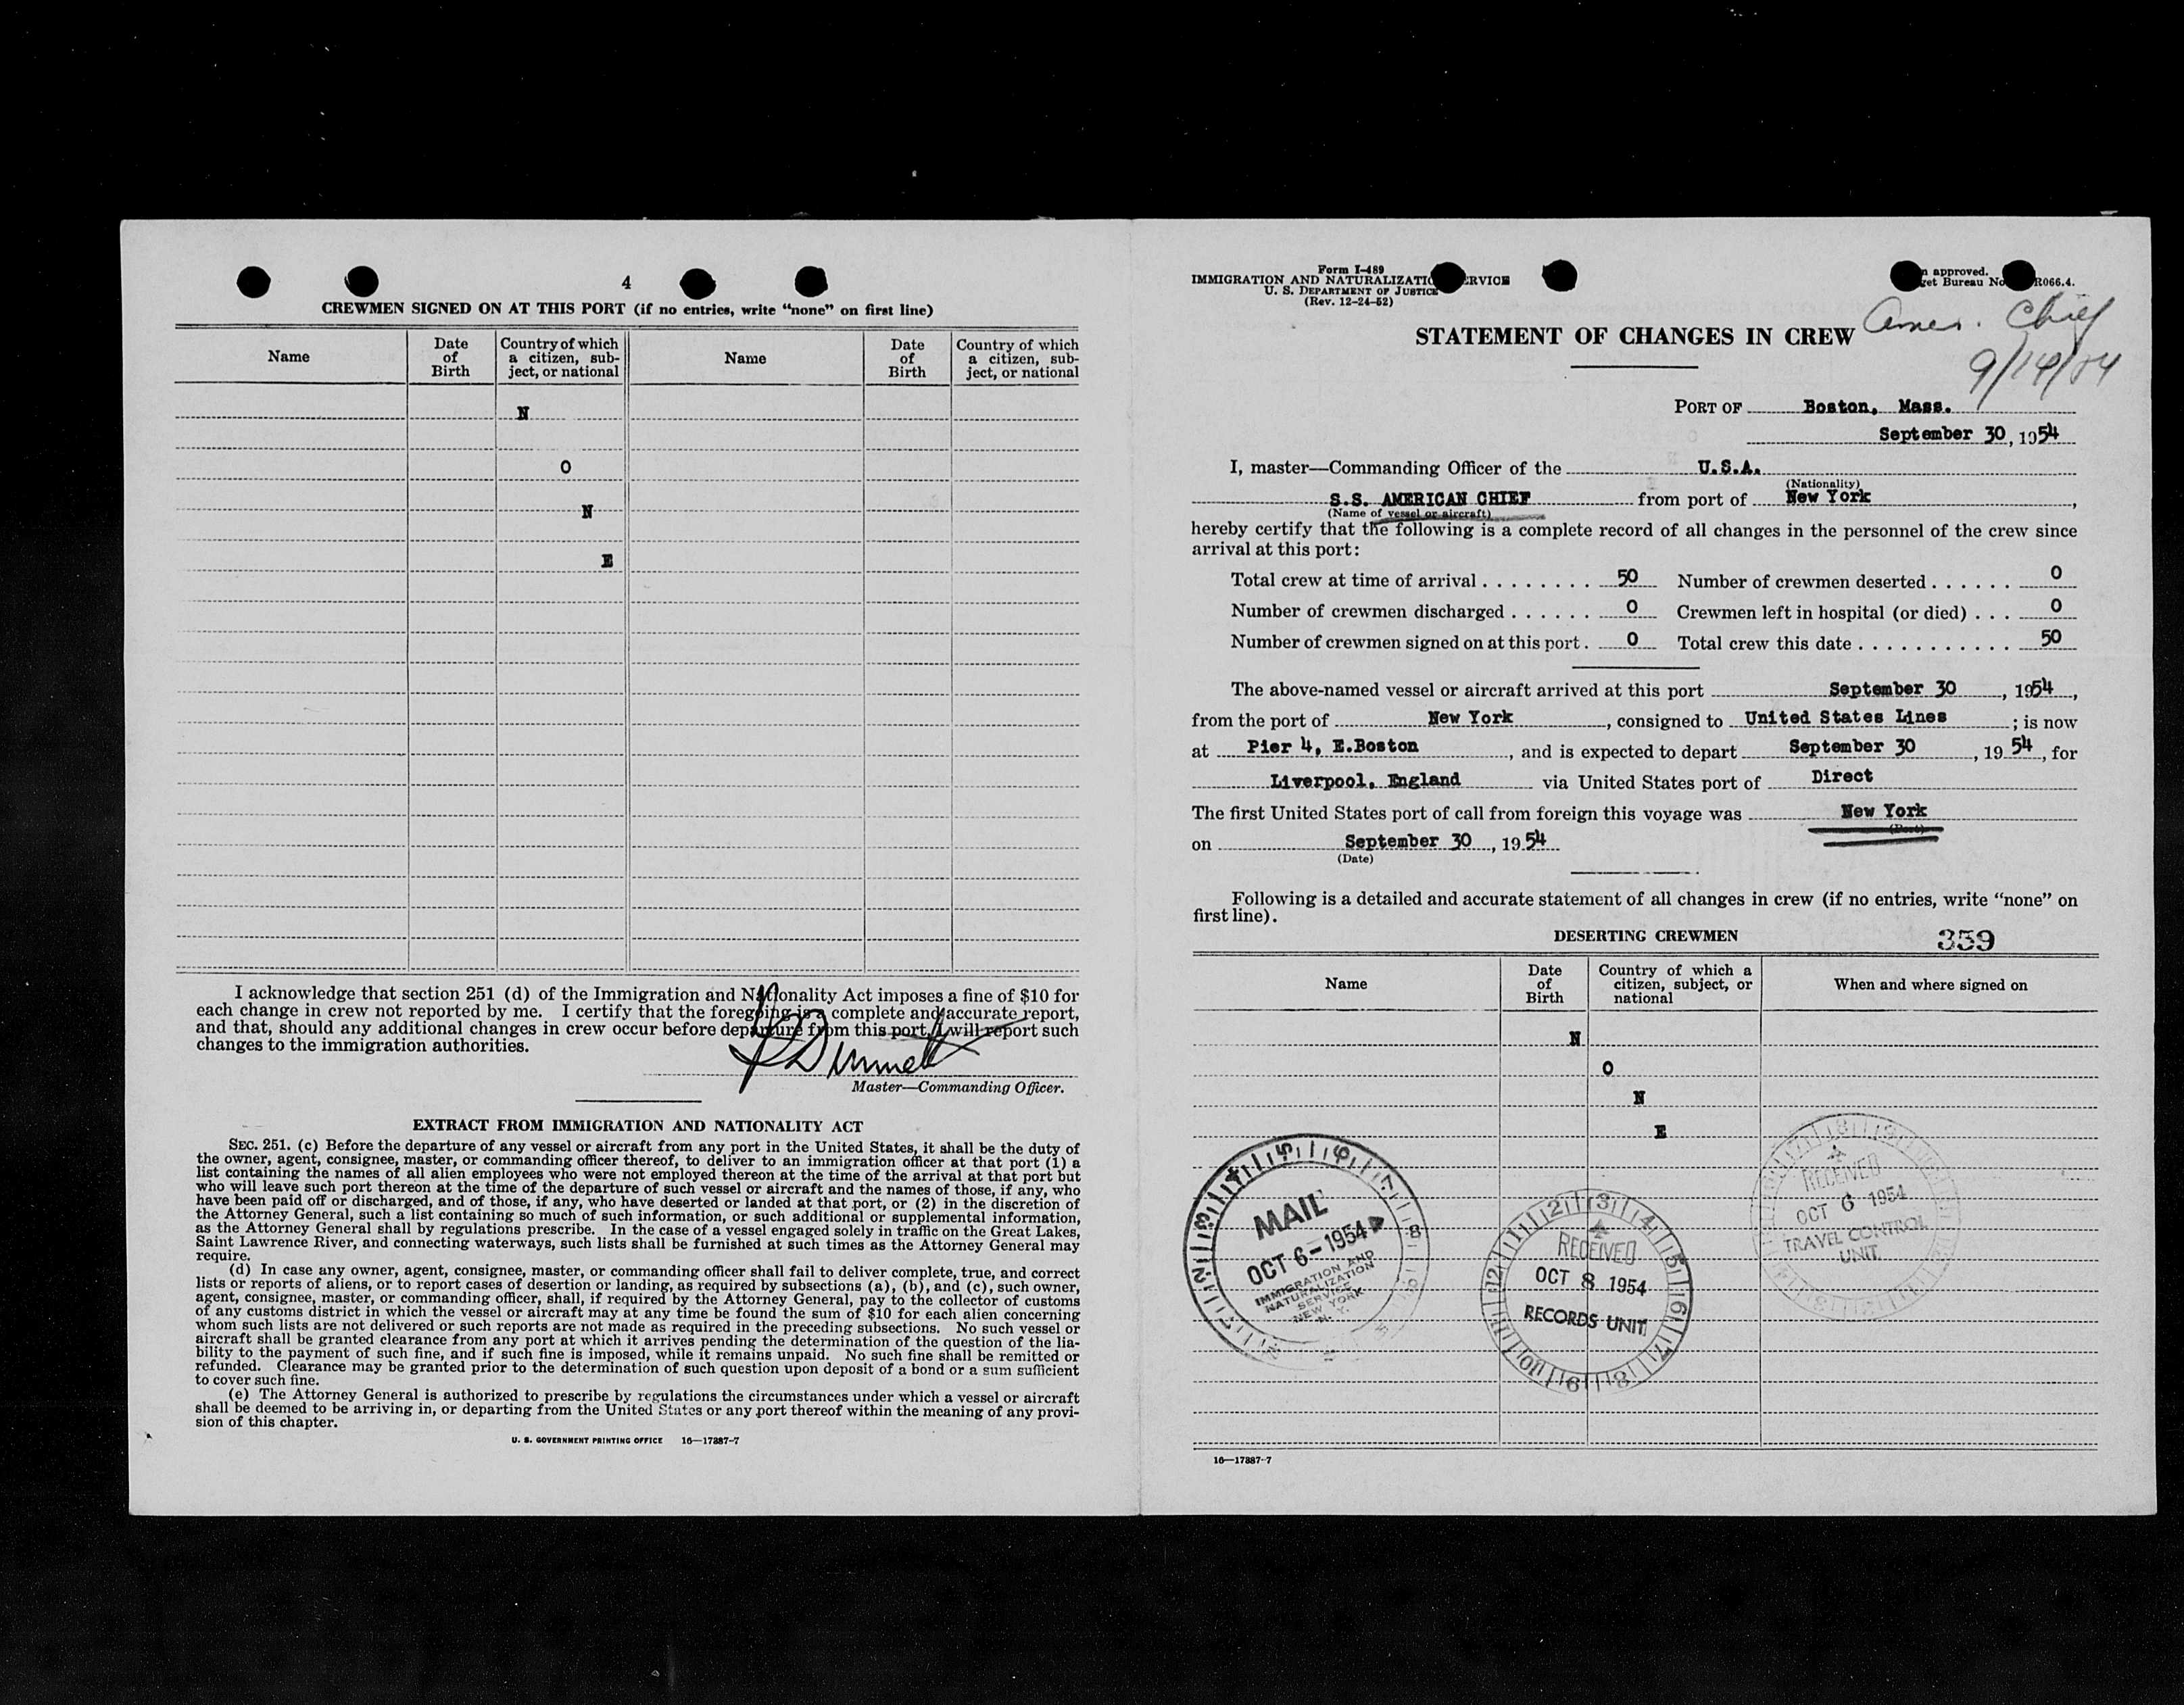 4
CREWMEN SIGNED ON AT THIS PORT (if no entries, write “none” on first line)
Name Date of Birth Country of which a citizen, sub-ject, or national Name Date of Birth Country of which a citizen, sub-ject, or national
N
O
N
E
I acknowledge that section 251 (d) of the Immigration and Nationality Act imposes a fine of $10 for
each change in crew not reported by me. I certify that the foregoing is a complete and accurate report,
and that, should any additional changes in crew occur before departure from this port, I will report such
changes to the immigration authorities.
Master—Commanding Officer.
EXTRACT FROM IMMIGRATION AND NATIONALITY ACT
SEC. 251. (c) Before the departure of any vessel or aircraft from any port in the United States, it shall be the duty of
the owner, agent, consignee, master, or commanding officer thereof, to deliver to an immigration officer at that port (1) a
list containing the names of all alien employees who were not employed thereon at the time of the arrival at that port but
who will leave such port thereon at the time of the departure of such vessel or aircraft and the names of those, if any, who
have been paid off or discharged, and of those, if any, who have deserted or landed at that port, or (2) in the discretion of
the Attorney General, such a list containing so much of such information, or such additional or supplemental information,
as the Attorney General shall by regulations prescribe. In the case of a vessel engaged solely in traffic on the Great Lakes,
Saint Lawrence River, and connecting waterways, such lists shall be furnished at such times as the Attorney General may
require.
(d) In case any owner, agent, consignee, master, or commanding officer shall fail to deliver complete, true, and correct
lists or reports of aliens, or to report cases of desertion or landing, as required by subsections (a), (b), and (c), such owner,
agent, consignee, master, or commanding officer, shall, if required by the Attorney General, pay to the collector of customs
of any customs district in which the vessel or aircraft may at any time be found the sum of $10 for each alien concerning
whom such lists are not delivered or such reports are not made as required in the preceding subsections. No such vessel or
aircraft shall be granted clearance from any port at which it arrives pending the determination of the question of the lia-
bility to the payment of such fine, and if such fine is imposed, while it remains unpaid. No such fine shall be remitted or
refunded. Clearance may be granted prior to the determination of such question upon deposit of a bond or a sum sufficient
to cover such fine.
(e) The Attorney General is authorized to prescribe by regulations the circumstances under which a vessel or aircraft
shall be deemed to be arriving in, or departing from the United States or any port thereof within the meaning of any provi-
sion of this chapter.
U. S. GOVERNMENT PRINTING OFFICE 16—17887-7
Form I-489
IMMIGRATION AND NATURALIZATIO ERVICE
U. S. DEPARTMENT OF JUSTICE
(Rev. 12-24-52)
approved.
et Bureau No R066.4.
Amer. Chief
STATEMENT OF CHANGES IN CREW
9/14/54
PORT OF Boston, Mass.
September 30, 1954
I, master—Commanding Officer of the U.S.A.
(Nationality)
S.S. AMERICAN CHIEF from port of New York,
(Name of vessel or aircraft)
hereby certify that the following is a complete record of all changes in the personnel of the crew since
arrival at this port:
Total crew at time of arrival 50 Number of crewmen deserted 0
Number of crewmen discharged 0 Crewmen left in hospital (or died) 0
Number of crewmen signed on at this port 0 Total crew this date 50
The above-named vessel or aircraft arrived at this port September 30, 1954,
from the port of New York, consigned to United States Lines; is now
at Pier 4, E.Boston, and is expected to depart September 30, 1954, for
Liverpool, England via United States port of Direct
The first United States port of call from foreign this voyage was New York
(Port)
on September 30, 1954
(Date)
Following is a detailed and accurate statement of all changes in crew (if no entries, write “none” on
first line).
DESERTING CREWMEN 359
Name Date of Birth Country of which a citizen, subject, or national When and where signed on
N
O
N
E
MAIL
OCT 6-1954
IMMIGRATION AND
NATURALIZATION
SERVICE
NEW YORK
N. Y.
RECEIVED
OCT 8 1954
RECORDS UNIT
RECEIVED
OCT 6 1954
TRAVEL CONTROL
UNIT
16—17887-7